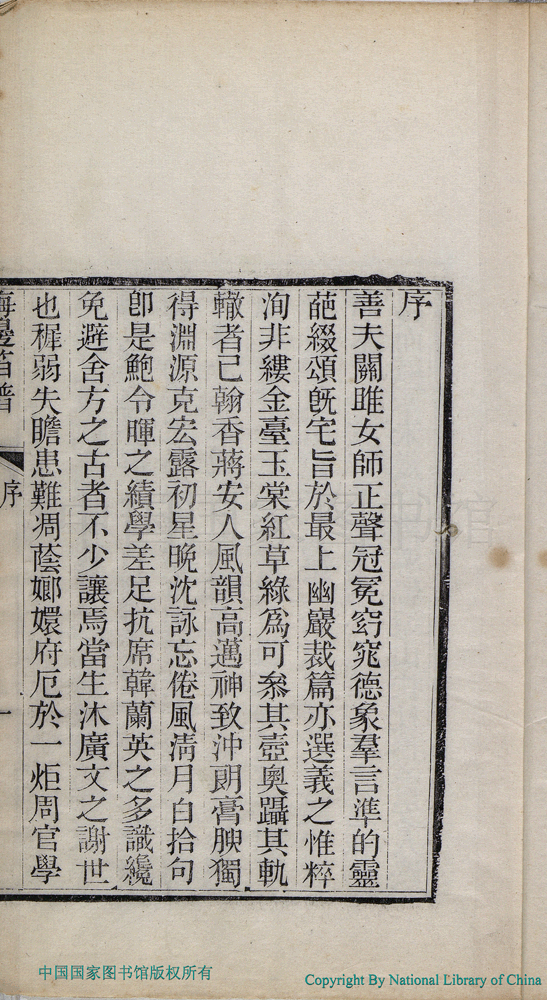 序
善夫關雎女師正聲冠冕窈窕德象羣言準的靈
葩綴頌旣宅旨於最上幽巖裁篇亦選義之惟粹
洵非縷金臺玉棠紅草綠為可叅其壼奥躡其軌
轍者已翰香蔣安人風韻高邁神致沖朗膏腴獨
得淵源克宏露初星晚沈詠忘倦風淸月白拾句
卽是鮑令暉之績學差足抗席韓蘭英之多識纔
免避舍方之古者不少讓焉當生沐廣文之謝世
也穉弱失瞻患難凋蔭嫏嬛府厄於一炬周官學
邊笛譜
序
一
中国国家图书馆版权所有
Copyright By National Library of China